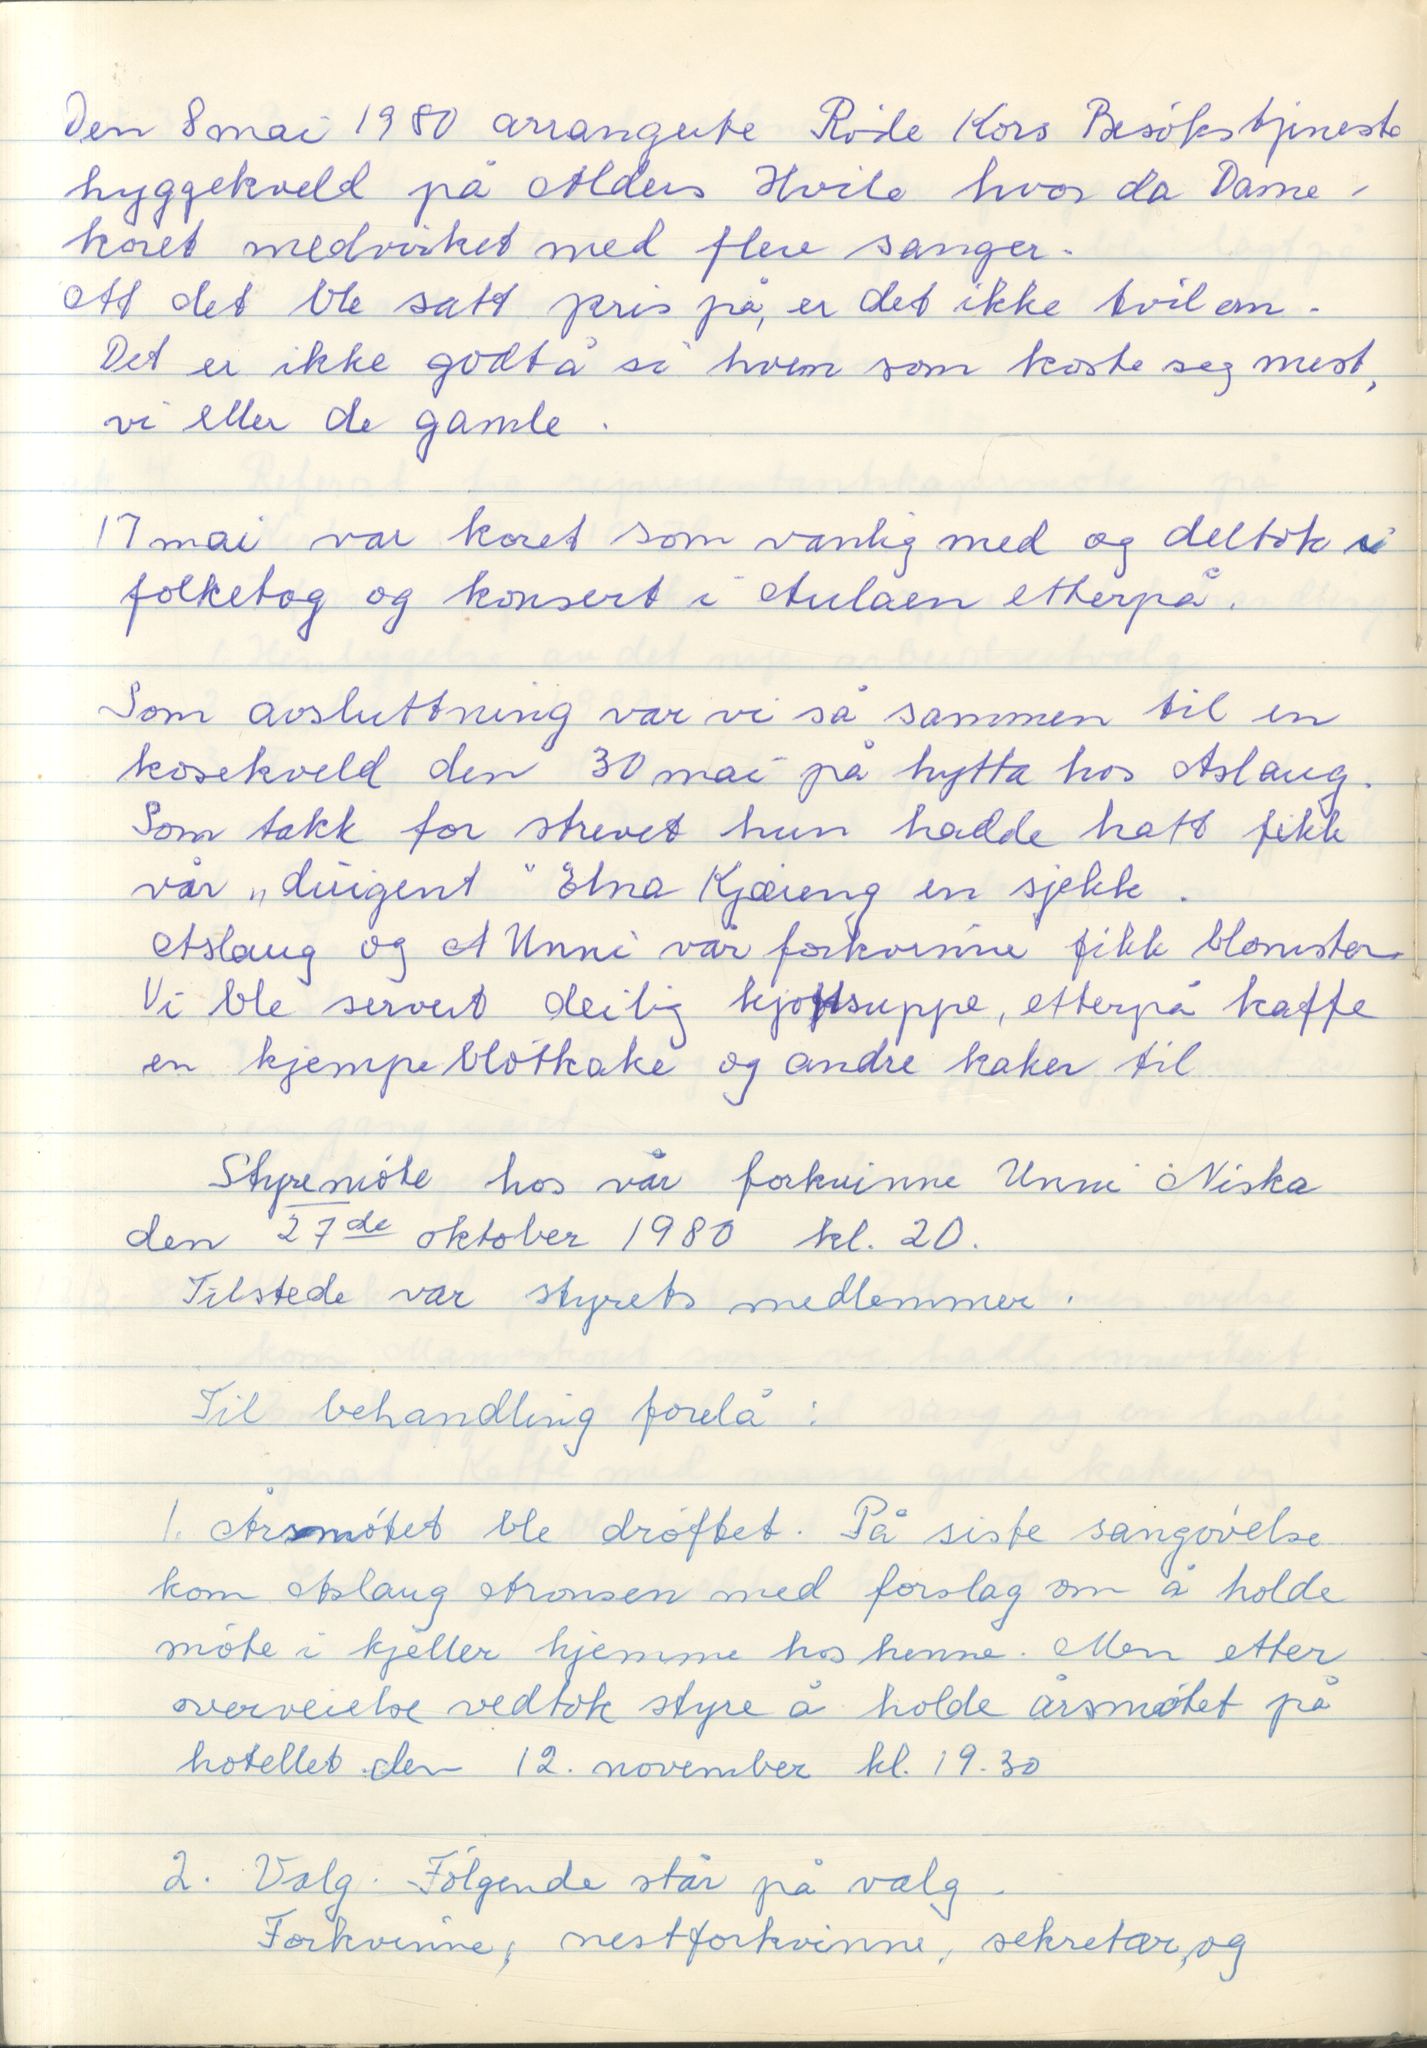 Den 8 mai 1980 arrangerte Røde Kors Besøkstjeneste
hyggekveld på Alders Hvile hvor da Dame-
koret medvirket med flere sanger.
At det ble satt pris på, er det ikke tvil om.
Det er ikke godt å si hvem som koste seg mest,
vi eller de gamle.
17 mai var koret som vanlig med og deltok i
folketog og konsert i Aulaen etterpå.
Som avsluttning var vi så sammen til en
kosekveld den 30 mai på hytta hos Aslaug.
Som takk for strevet hun hadde hatt fikk
vår „dirigent" Elna Kjæreng en sjekk.
Aslaug og A Unni vår forkvinne fikk blomster.
Vi ble servert deilig kjøttsuppe, etterpå kaffe
en kjempe bløtkake og andre kaker til
Styremøte hos vår forkvinne Unni Niska
den 27de oktober 1980 kl. 20.
Tilstede var styrets medlemmer.
Til behandling forelå:
1. Årsmøtet ble drøftet. På siste sangøvelse
kom Aslaug Aronsen med forslag om å holde
møte i kjeller hjemme hos henne. Men etter
overveielse vedtok styre å holde årsmøtet på
hotellet den 12. november kl. 19.30
2. Valg. Følgende står på valg.
Forkvinne, nestforkvinne, sekretær, og